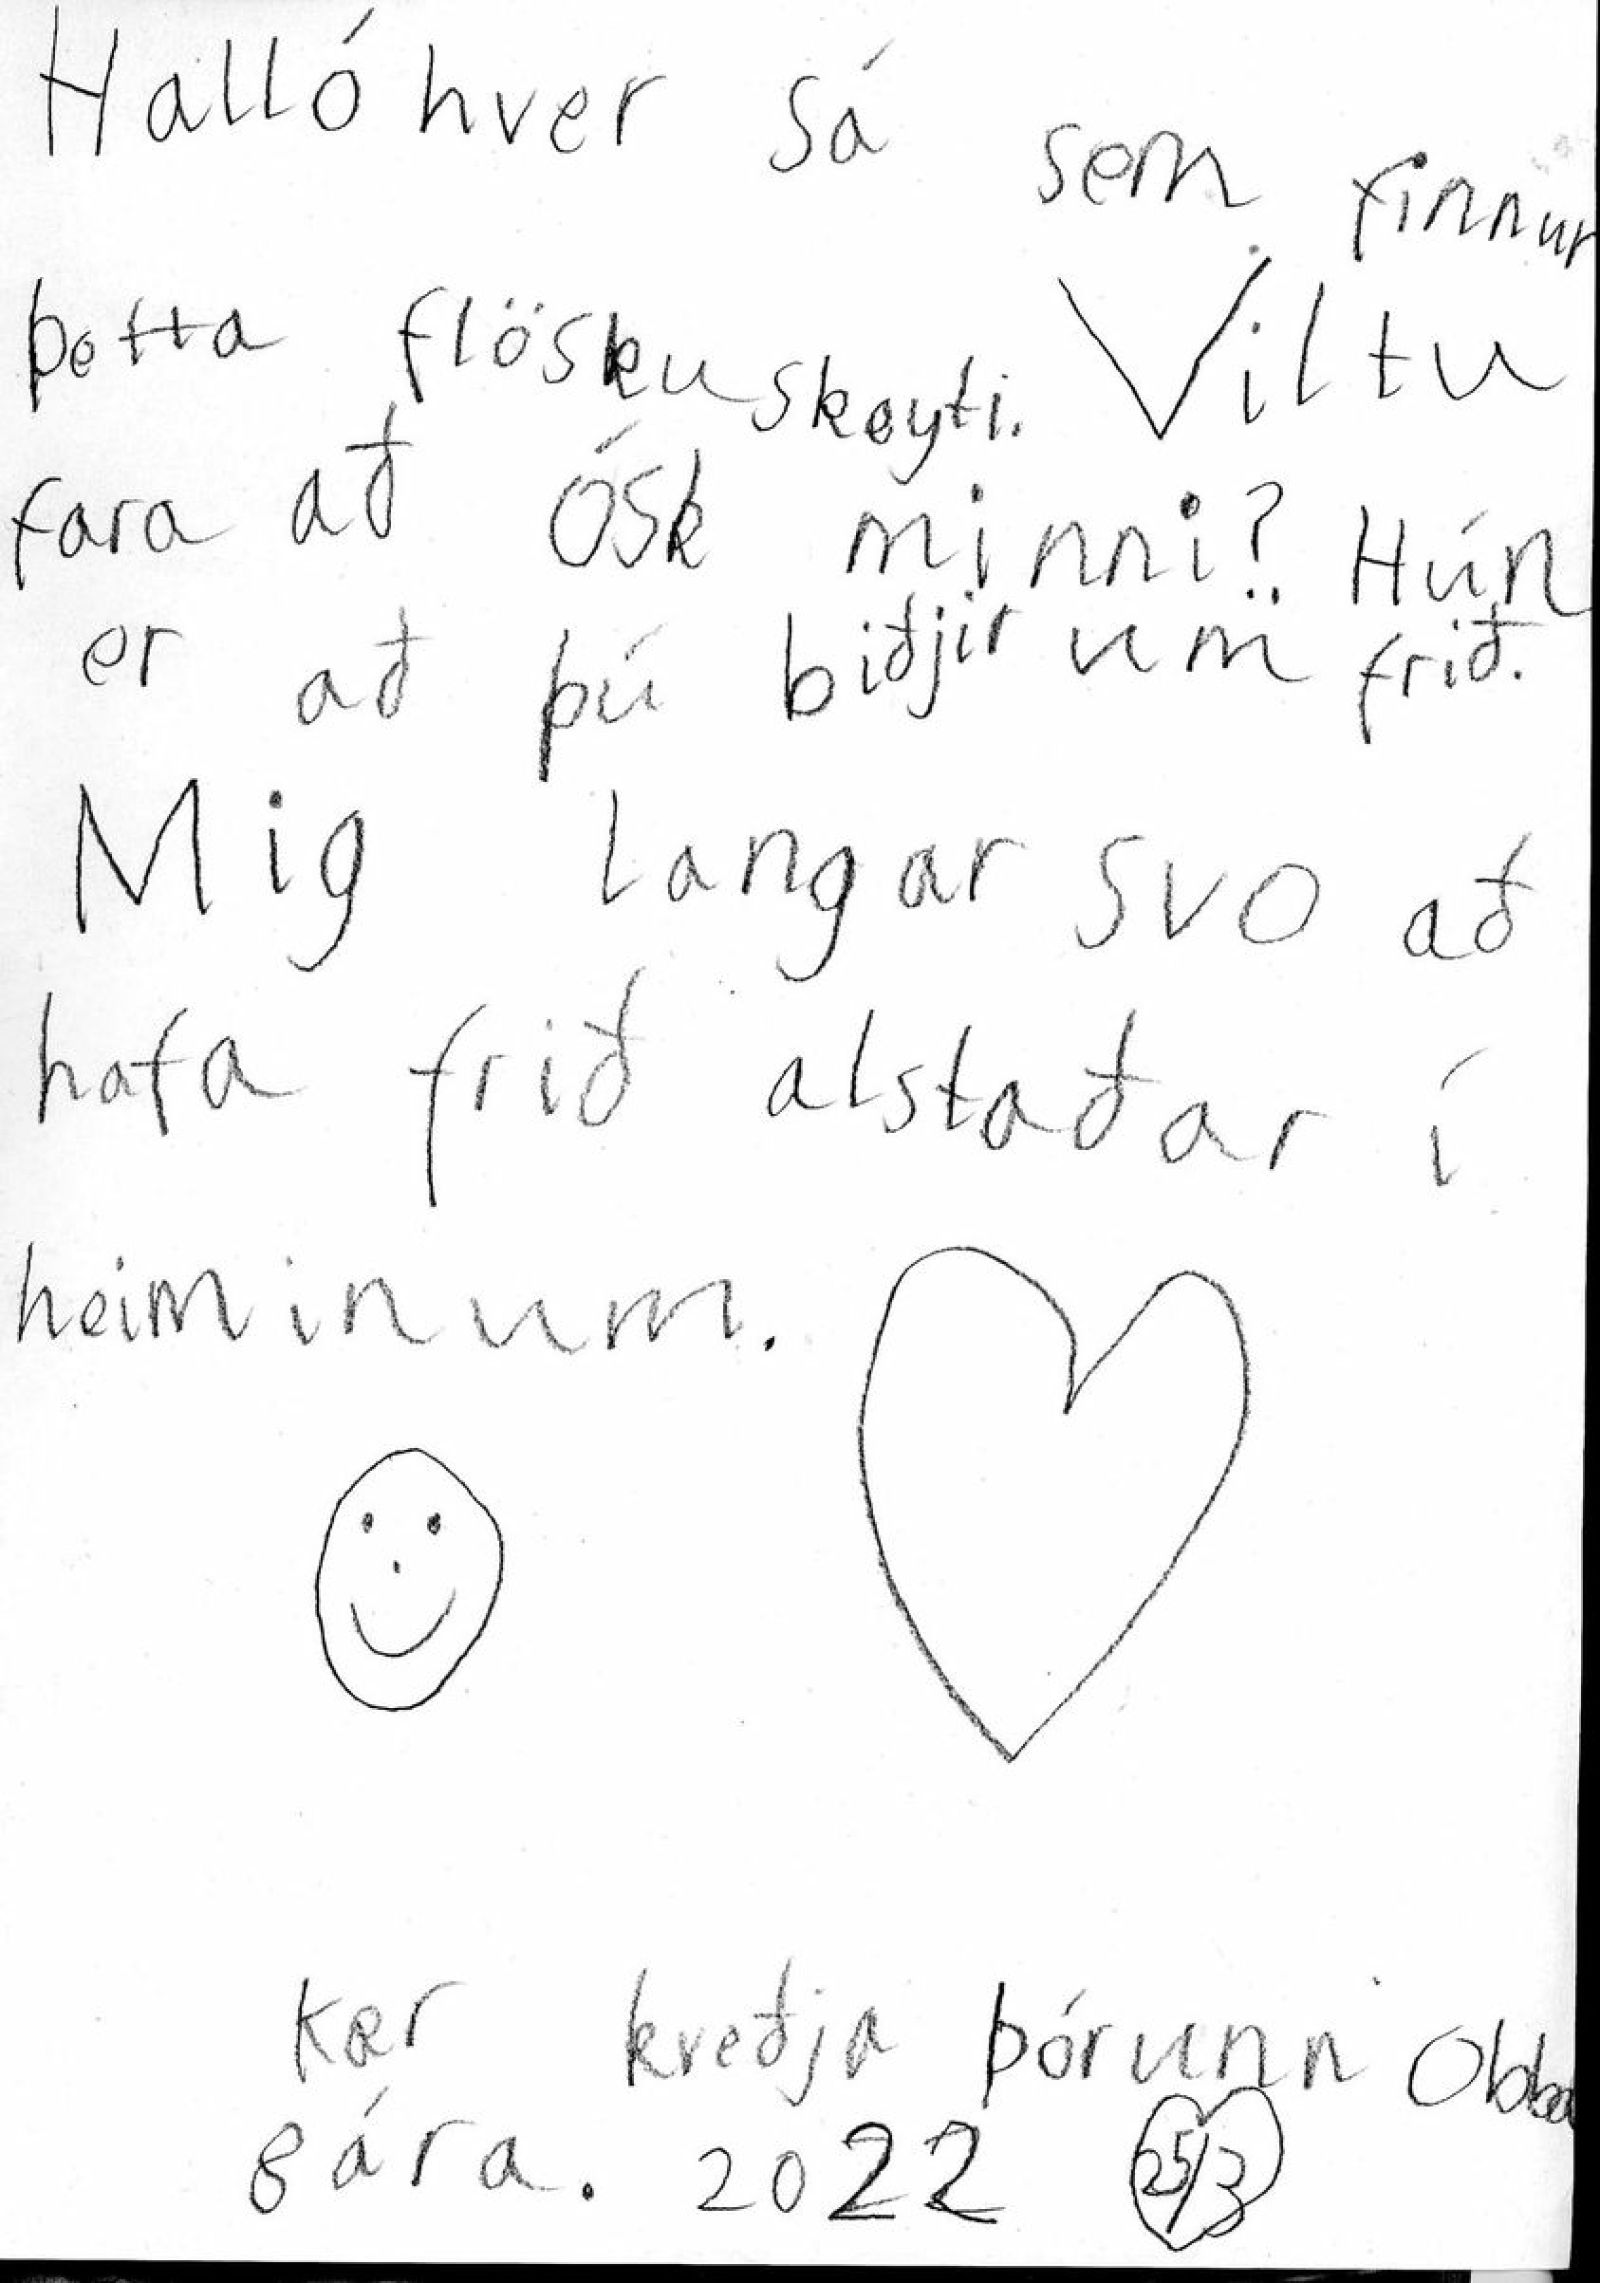 Halló hver sá sem finnur
þetta flöskuskeyti. Viltu
fara að ósk minni? Hún
er að þú biðjir um frið.
Mig langar svo að
hafa frið alstaðar í
heiminum.
Kær kveðja Þórunn Obba
8 ára. 2022 25/3